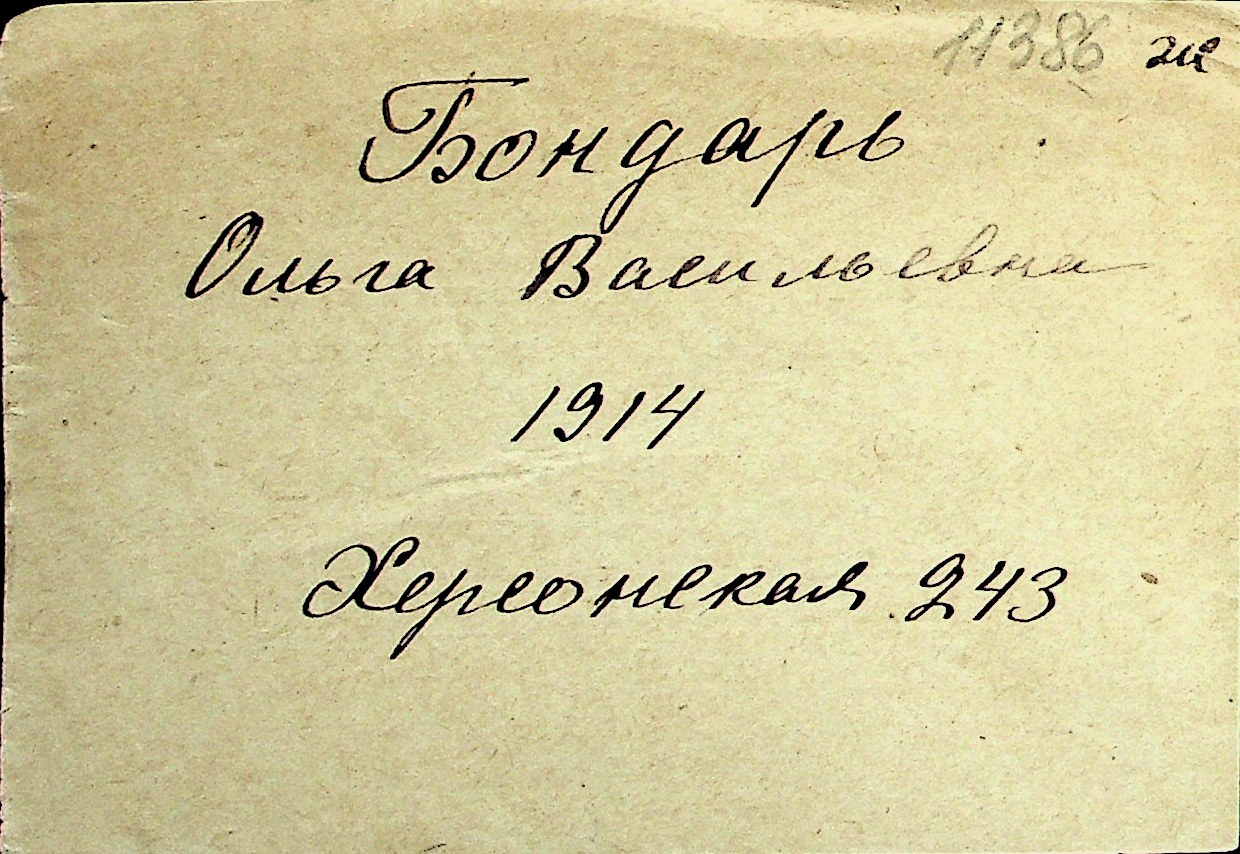 11386
Бондарь
Ольга Васильевна
1914
Херсонская 243